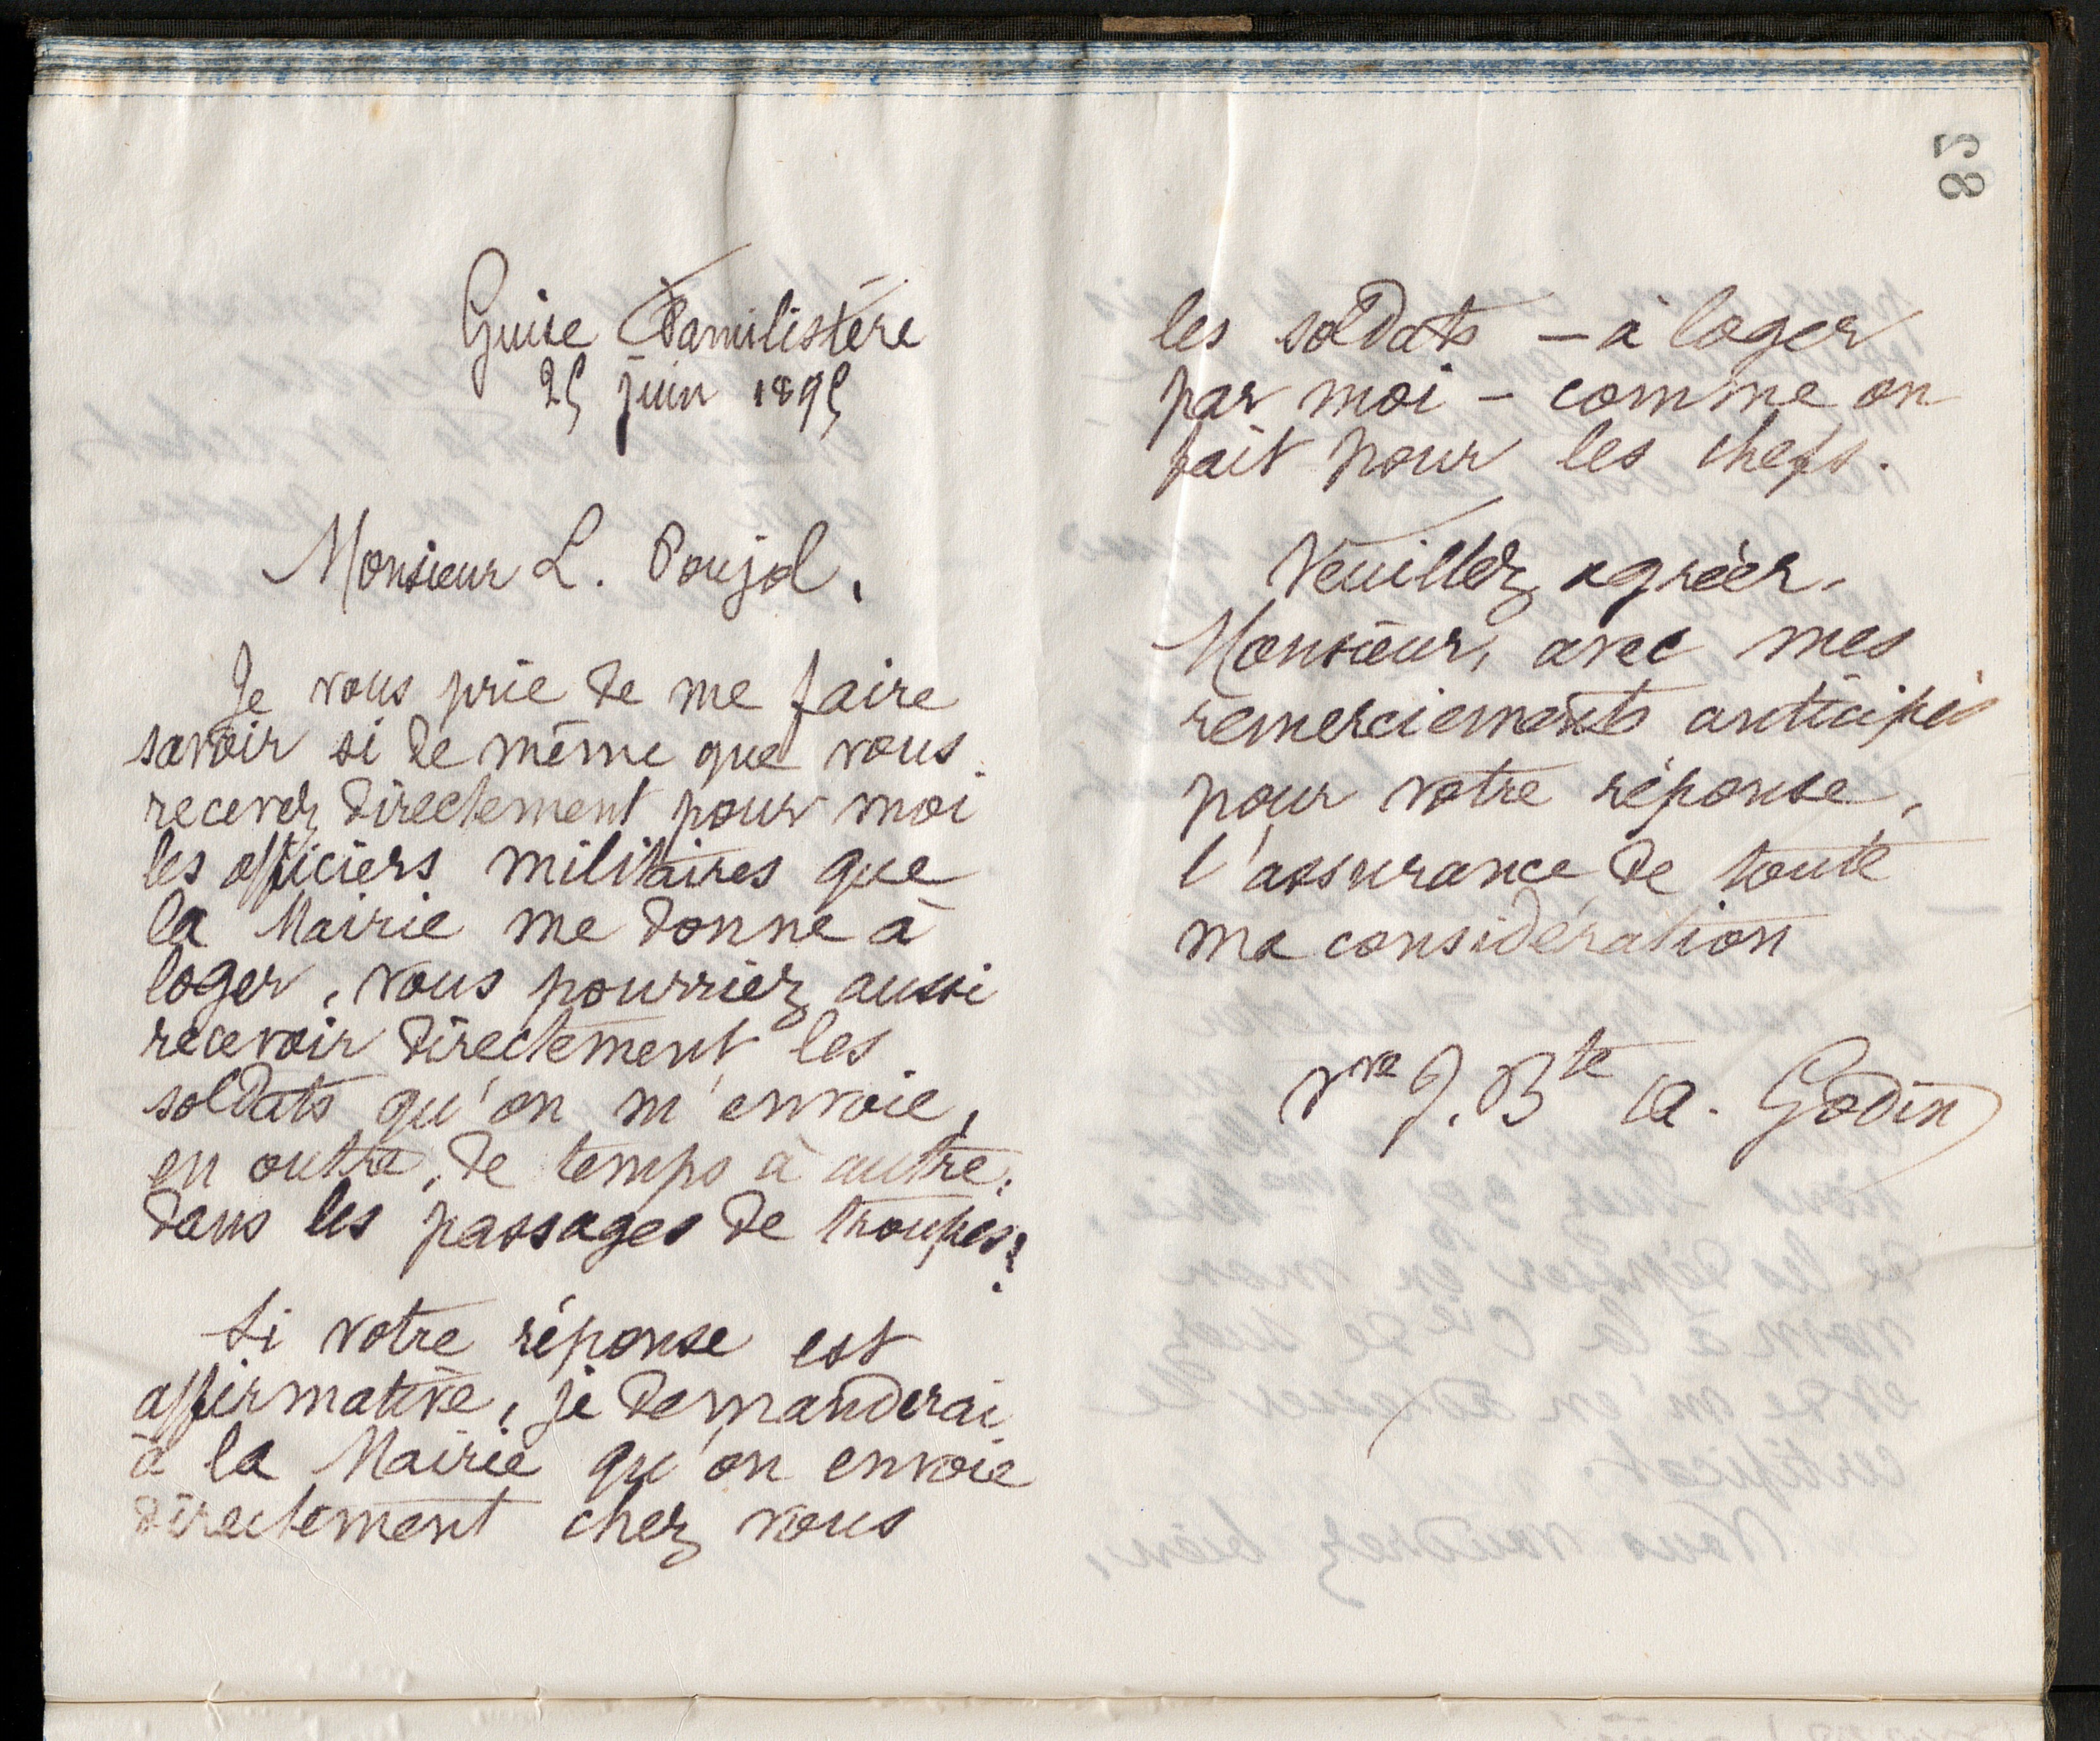 Guise Familistère
25 juin 1895
Monsieur L. Poujol,
Je vous prie de me faire
savoir si de même que vous
recevez directement pour moi
les officiers militaires que
la Mairie me donne à
loger, vous pourriez aussi
recevoir directement les
soldats qu'on m'envoie,
en outre, de temps à autre,
dans les passages de troupes?
Si votre réponse est
affirmative, je demanderai
à la Mairie qu'on envoie
directement chez vous
85
les soldats — à loger
par moi — comme on
fait pour les chefs.
Veuillez agréer,
Monsieur, avec mes
remerciements anticipés
pour votre réponse,
l'assurance de toute
ma considération
Vve J. Bte A. Godin